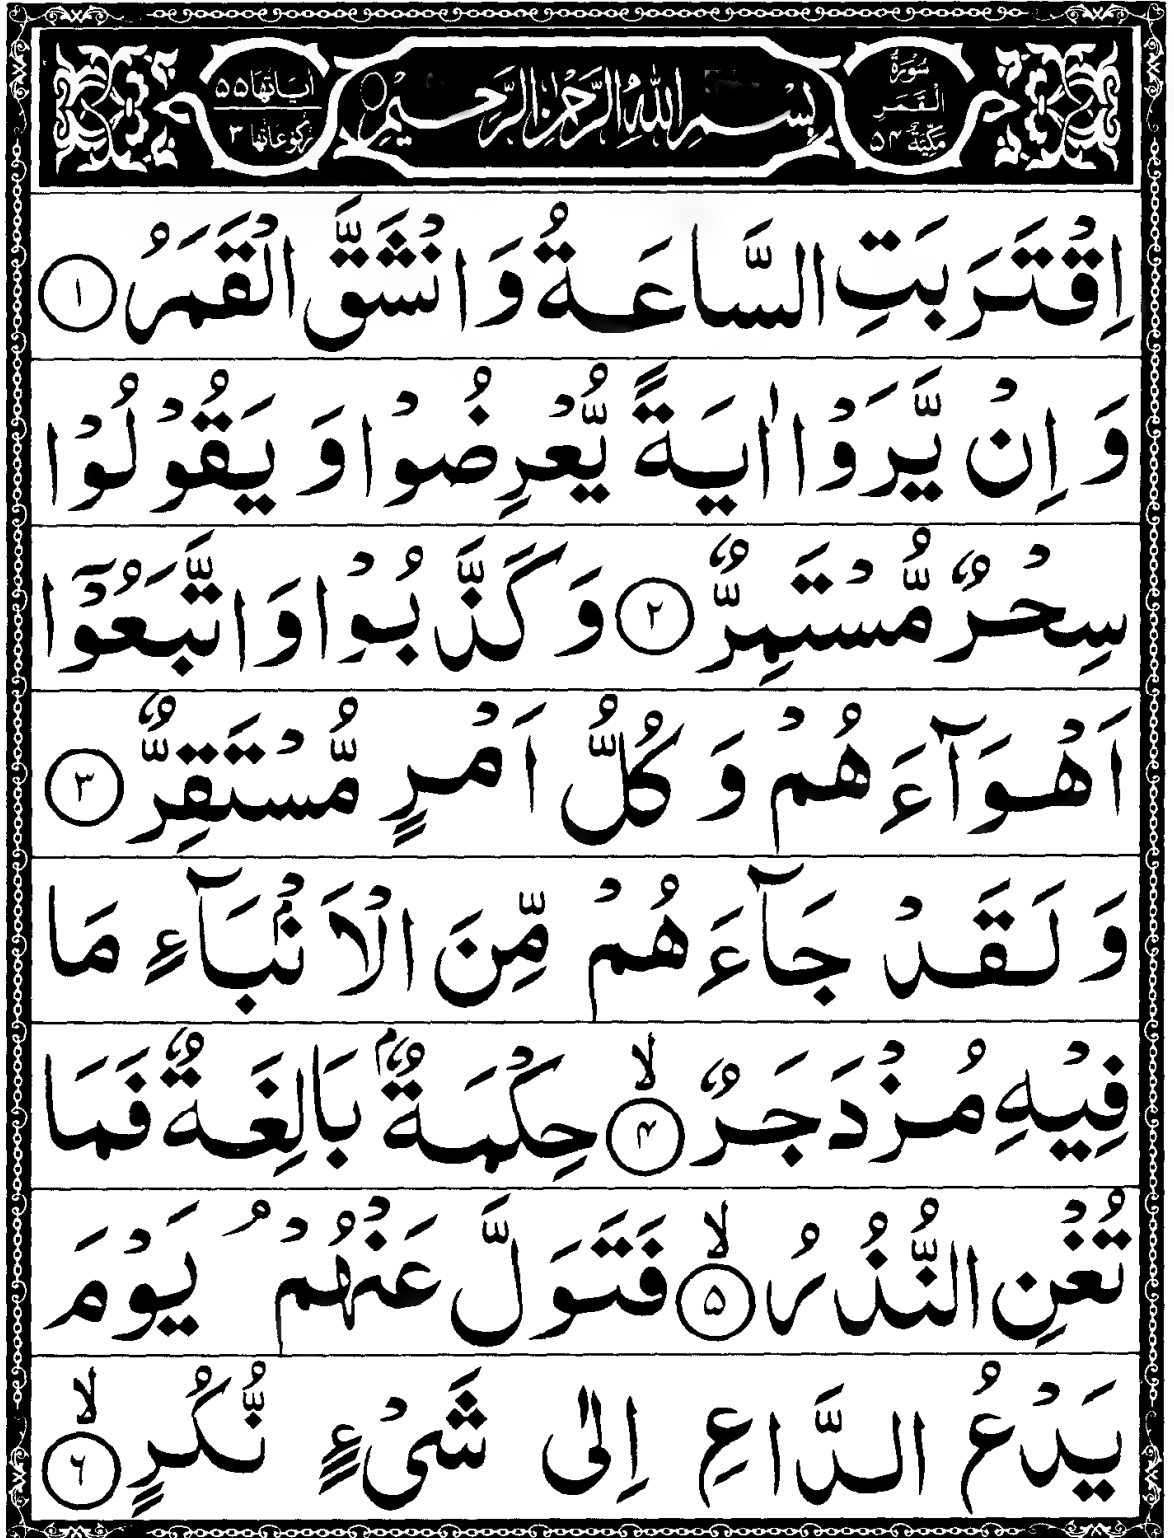 سُوْرَةُ
الْقَمَرِ
مَكِّيَّةٌ ٥٤
بِسْمِ اللّٰهِ الرَّحْمٰنِ الرَّحِيْمِ
اٰيَاتُهَا ٥٥
رُكُوْعَاتُهَا ٣
اِقْتَرَبَتِ السَّاعَةُ وَ انْشَقَّ الْقَمَرُ ١
وَ اِنْ يَّرَوْا اٰيَةً يُّعْرِضُوْا وَ يَقُوْلُوْا
سِحْرٌ مُّسْتَمِرٌّ ٢ وَ كَذَّبُوْا وَ اتَّبَعُوْۤا
اَهْوَآءَهُمْ وَ كُلُّ اَمْرٍ مُّسْتَقِرٌّ ٣
وَ لَقَدْ جَآءَهُمْ مِّنَ الْاَنْۢبَآءِ مَا
فِيْهِ مُزْدَجَرٌ ۙ۴ حِكْمَةٌۢ بَالِغَةٌ فَمَا
تُغْنِ النُّذُرُ ۙ۵ فَتَوَلَّ عَنْهُمْ ۘ يَوْمَ
يَدْعُ الدَّاعِ اِلٰى شَيْءٍ نُّكُرٍ ۙ۶